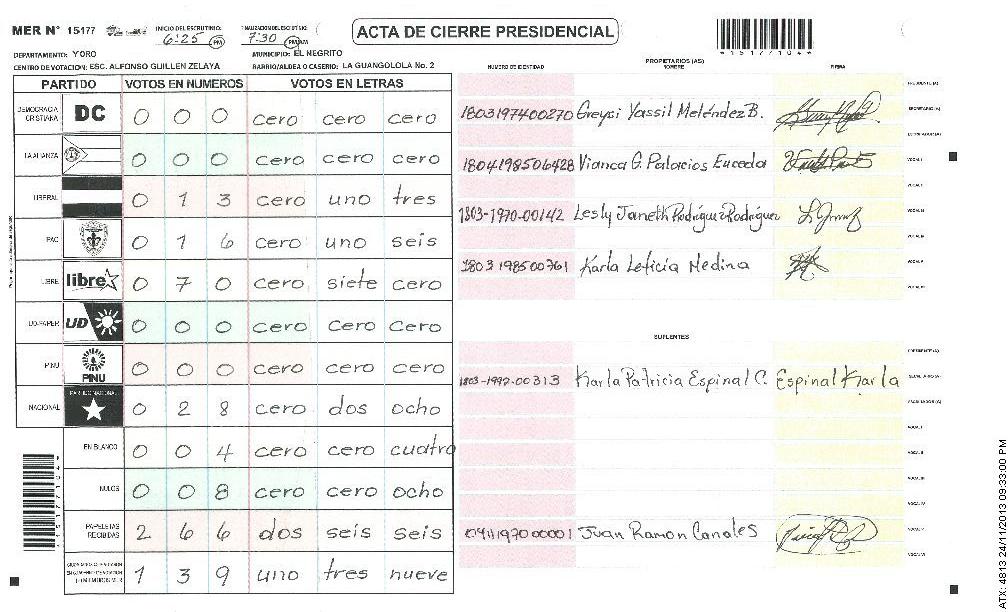 MER N° 15177 INICIO DEL ESCRUTINIO: 6:25 PM FINALIZACION DEL ESCRUTINIO: 7:30 PM ACTA DE CIERRE PRESIDENCIAL
DEPARTAMENTO: YORO MUNICIPIO: EL NEGRITO
CENTRO DE VOTACION: ESC. ALFONSO GUILLEN ZELAYA BARRIO/ALDEA O CASERIO: LA GUANGOLOLA No. 2
PARTIDO VOTOS EN NUMEROS VOTOS EN LETRAS
DEMOCRACIA CRISTIANA DC 0 0 0 cero cero cero
LA ALIANZA 0 0 0 cero cero cero
LIBERAL 0 1 3 cero uno tres
PAC 0 1 6 cero uno seis
LIBRE libre 0 7 0 cero siete cero
UD-FAPER UD 0 0 0 cero cero cero
PINU PINU 0 0 0 cero cero cero
NACIONAL PARTIDO NACIONAL 0 2 8 cero dos ocho
EN BLANCO 0 0 4 cero cero cuatro
NULOS 0 0 8 cero cero ocho
PAPELETAS RECIBIDAS 2 6 6 dos seis seis
1 3 9 uno tres nueve
PROPIETARIOS (AS)
NUMERO DE IDENTIDAD NOMBRE FIRMA
PRESIDENTE (A)
1803197400270 Greysi Yassil Meléndez B. SECRETARIO (A)
ESCRUTADOR (A)
1804198506428 Vianca G. Palacios Euceda VOCAL I
VOCAL II
1803-1970-00142 Lesly Janeth Rodríguez Rodríguez VOCAL III
VOCAL IV
1803198500761 Karla Leticia Medina VOCAL V
VOCAL VI
SUPLENTES
PRESIDENTE (A)
1803-1992-00313 Karla Patricia Espinal C. Espinal Karla SECRETARIO (A)
ESCRUTADOR (A)
VOCAL I
VOCAL II
VOCAL III
VOCAL IV
0411197000001 Juan Ramon Canales VOCAL V
VOCAL VI
ATX: 4813 24/11/2013 09:33:00 PM